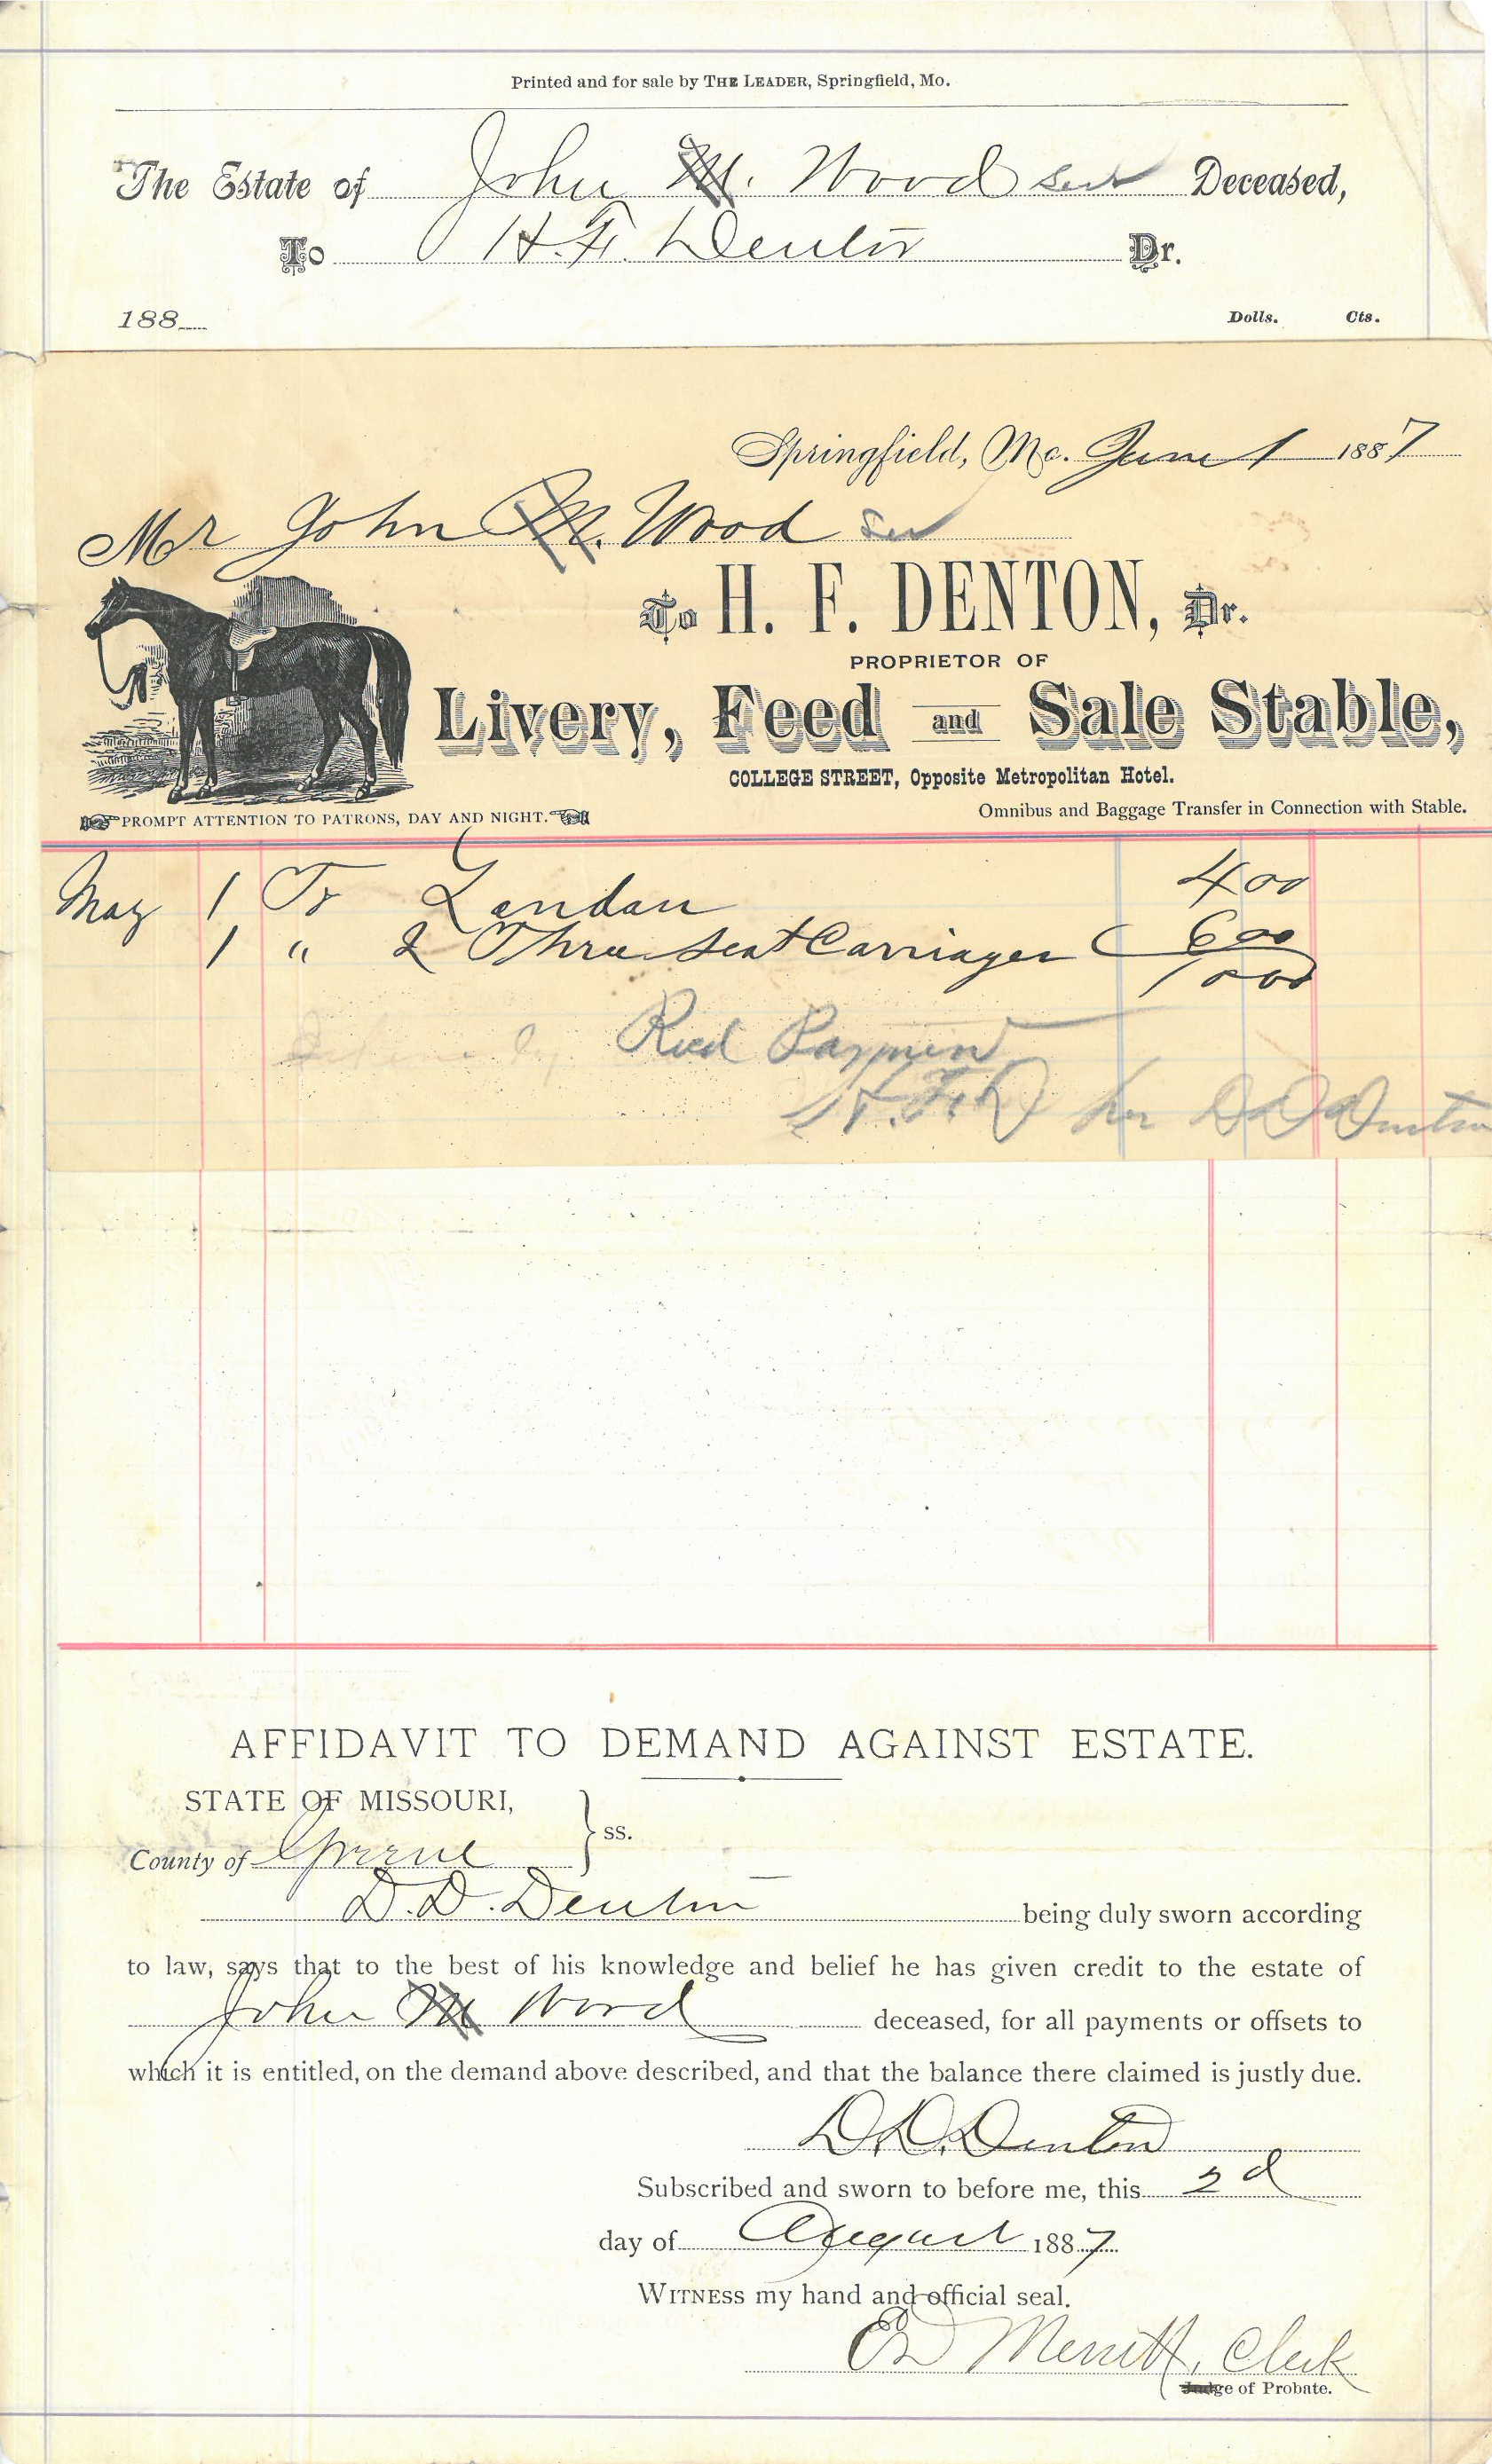 Printed and for sale by THE LEADER, Springfield, Mo.
The Estate of John M. Wood Sen Deceased,
To H. F. Denton Dr.
188 Dolls. Cts.
Springfield, Mo. June 1 1887
Mr John M. Wood Sen
To H. F. DENTON, Dr.
PROPRIETOR OF
Livery, Feed and Sale Stable,
COLLEGE STREET, Opposite Metropolitan Hotel.
Omnibus and Baggage Transfer in Connection with Stable.
PROMPT ATTENTION TO PATRONS, DAY AND NIGHT.
May 1 To Landau 4 00
1 " 2 Three Seat Carriages 6 00
10 00
Recd Payment
H. F. D per D D Denton
AFFIDAVIT TO DEMAND AGAINST ESTATE.
STATE OF MISSOURI,
County of Greene } ss.
D. D. Denton being duly sworn according
to law, says that to the best of his knowledge and belief he has given credit to the estate of
John M Wood deceased, for all payments or offsets to
which it is entitled, on the demand above described, and that the balance there claimed is justly due.
D. D. Denton
Subscribed and sworn to before me, this 2d
day of August 1887
WITNESS my hand and official seal.
ED Merritt, Clerk
Judge of Probate.